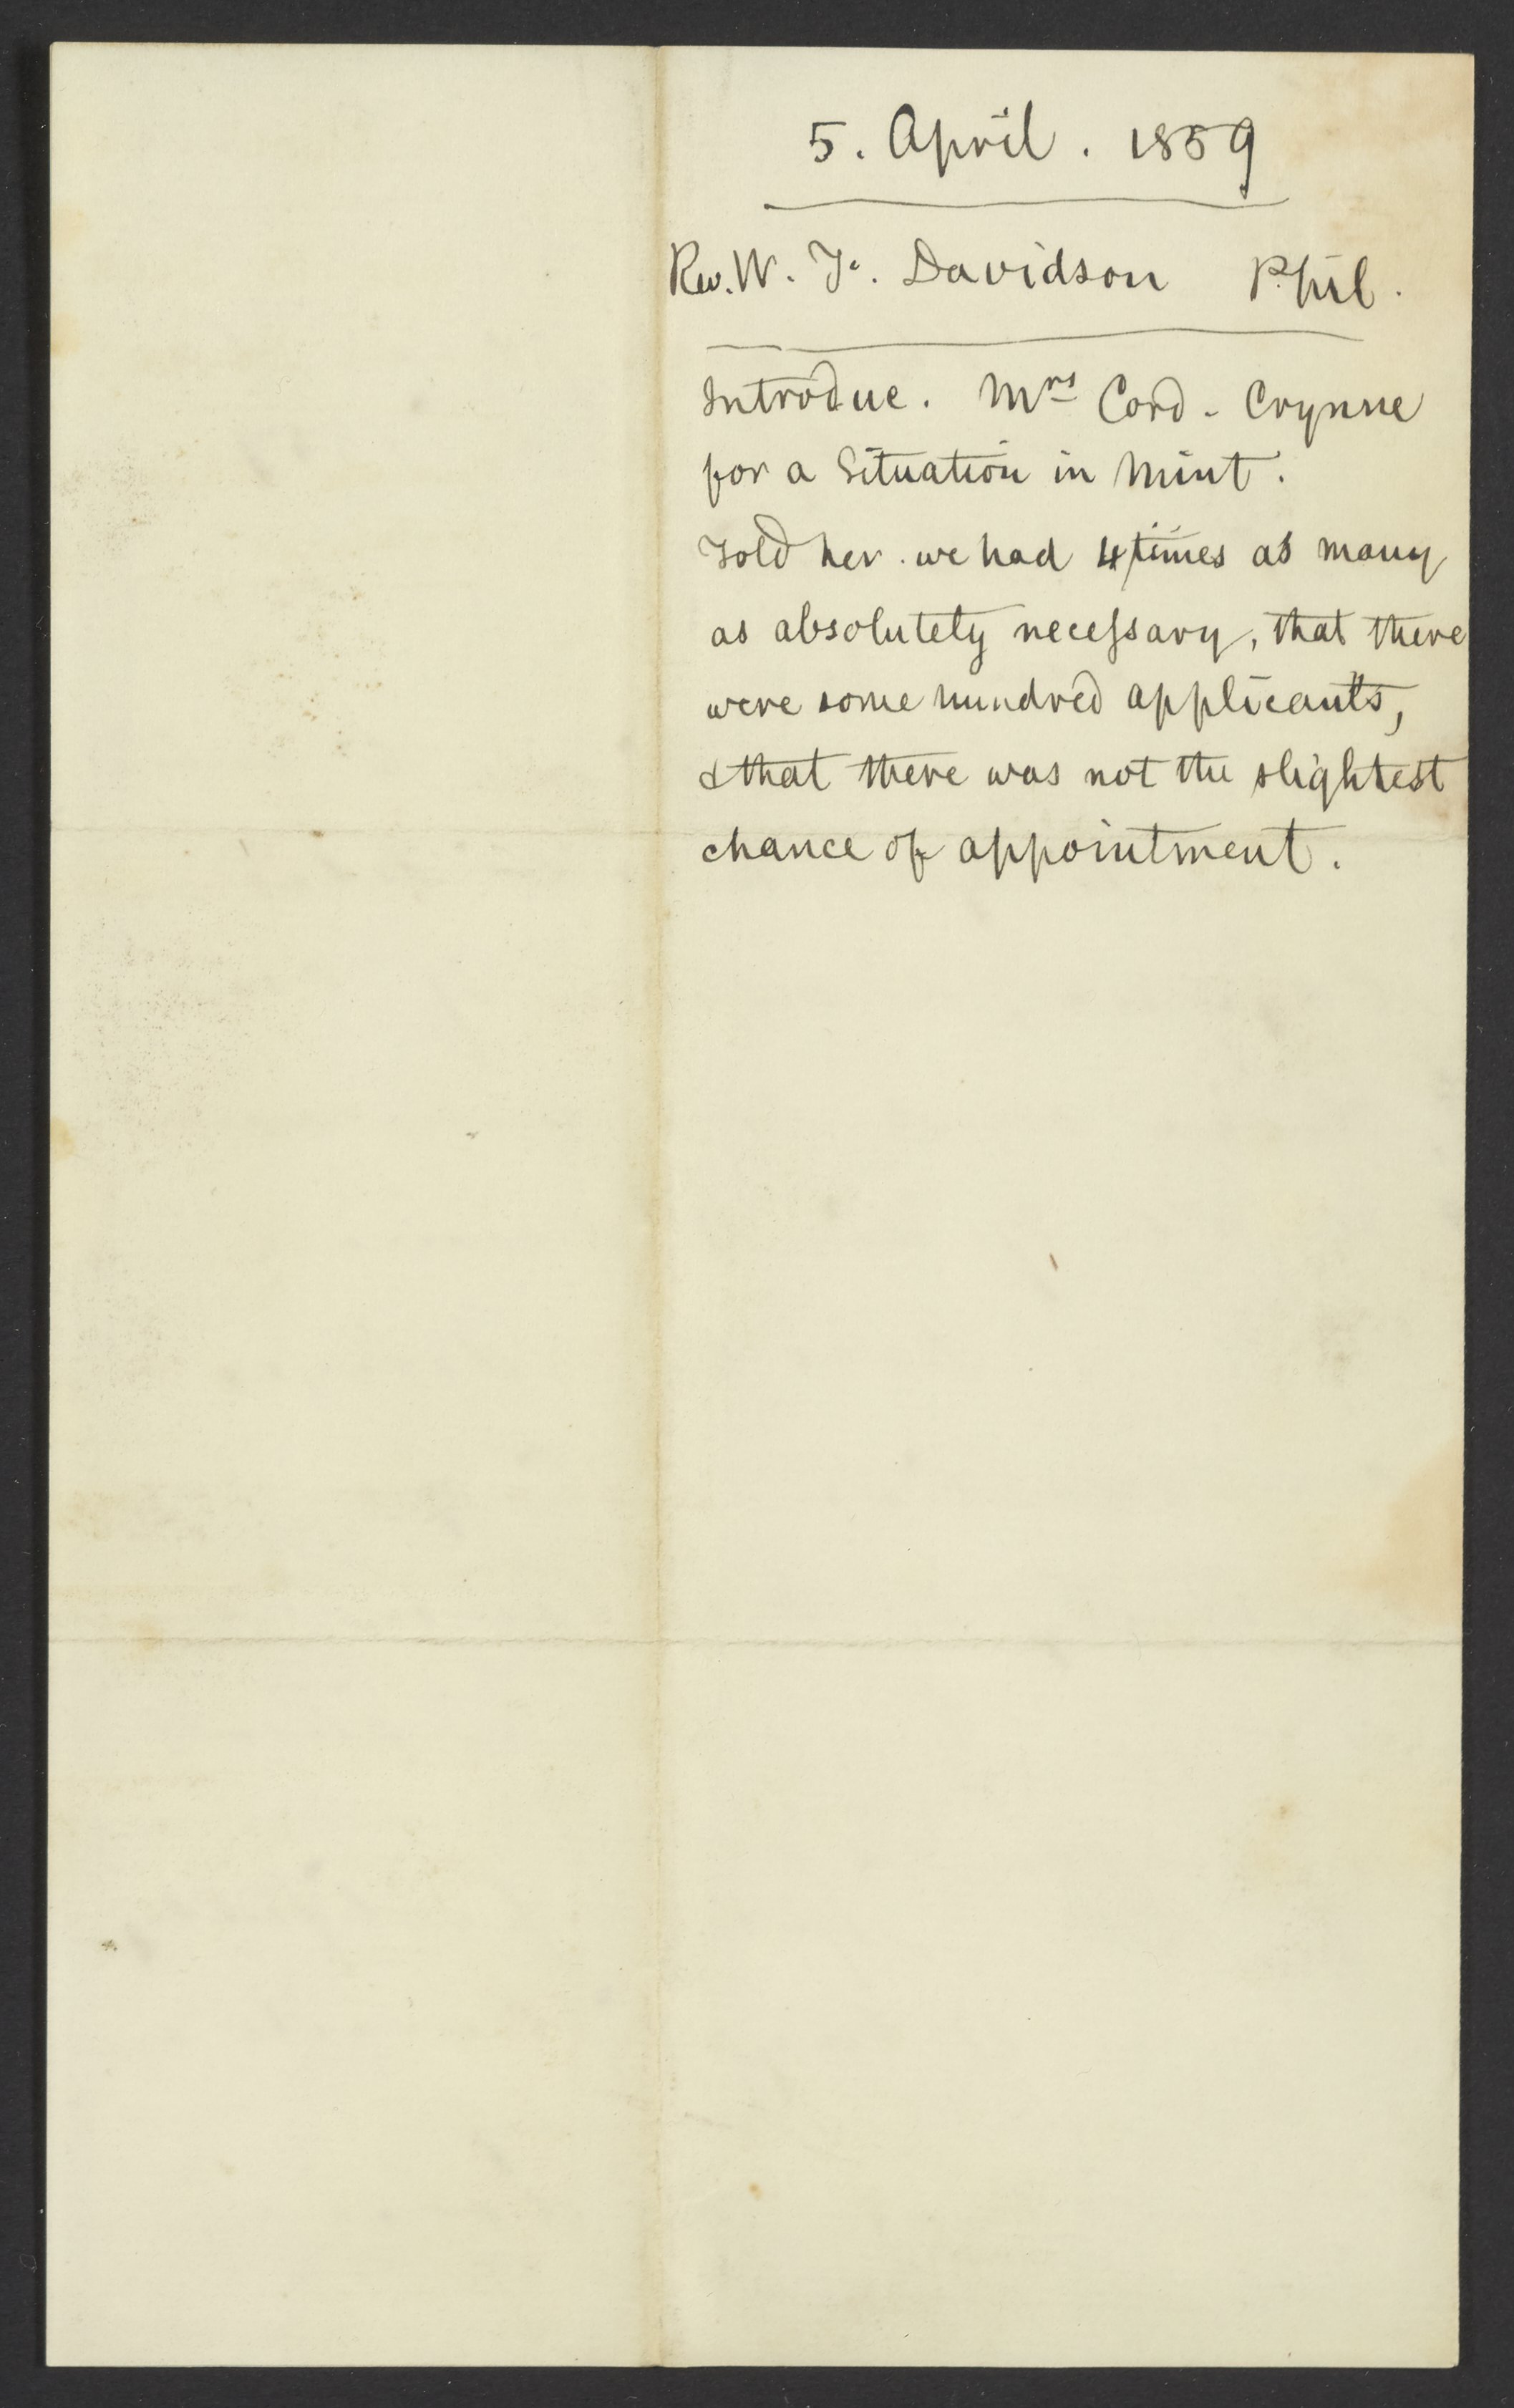 5. April. 1859
Rev. W. J. Davidson Phil.
Introdue. Mrs Cord - Crynne
for a Situation in Mint.
Told her. we had 4 times as many
as absolutely necessary, that there
were some hundred applicants,
& that there was not the slightest
chance of appointment.